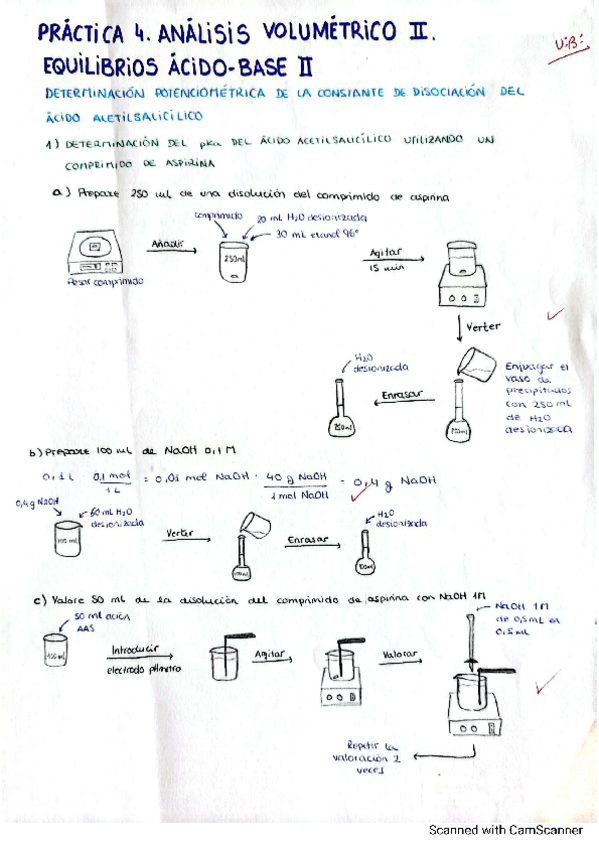 PRÁCTICA 4. ANÁLISIS VOLUMÉTRICO II.
V.B:
EQUILIBRIOS ÁCIDO-BASE II
DETERMINACIÓN POTENCIOMÉTRICA DE LA CONSTANTE DE DISOCIACIÓN DEL
ÁCIDO ACETILSALICÍLICO
1) DETERMINACIÓN DEL pka DEL ÁCIDO ACETILSALICÍLICO UTILIZANDO UN
COMPRIMIDO DE ASPIRINA
a) Prepare 250 mL de una disolución del comprimido de aspirina
comprimido
20 mL H2O desionizada
30 mL etanol 96°
Añadir
250mL
Agitar
15 min
Pesar comprimido
Verter
H2O
desionizada
Enrasar
Enjuagar el
vaso de
precipitados
con 250 mL
de H2O
desionizada
250ml
250ml
b) Prepare 100 mL de NaOH 0,1 M
0,1 L 0,1 mol / 1 L = 0,01 mol NaOH · 40 g NaOH / 1 mol NaOH = 0,4 g NaOH
0,4g NaOH
60 mL H2O
desionizada
100 ml
Verter
100ml
Enrasar
H2O
desionizada
100ml
c) Valore 50 mL de la disolución del comprimido de aspirina con NaOH 1M
50 ml dción
AAS
100ml
Introducir
electrodo pHmetro
Agitar
Valorar
NaOH 1M
de 0,5mL en
0,5mL
Repetir la
valoración 2
veces
Scanned with CamScanner